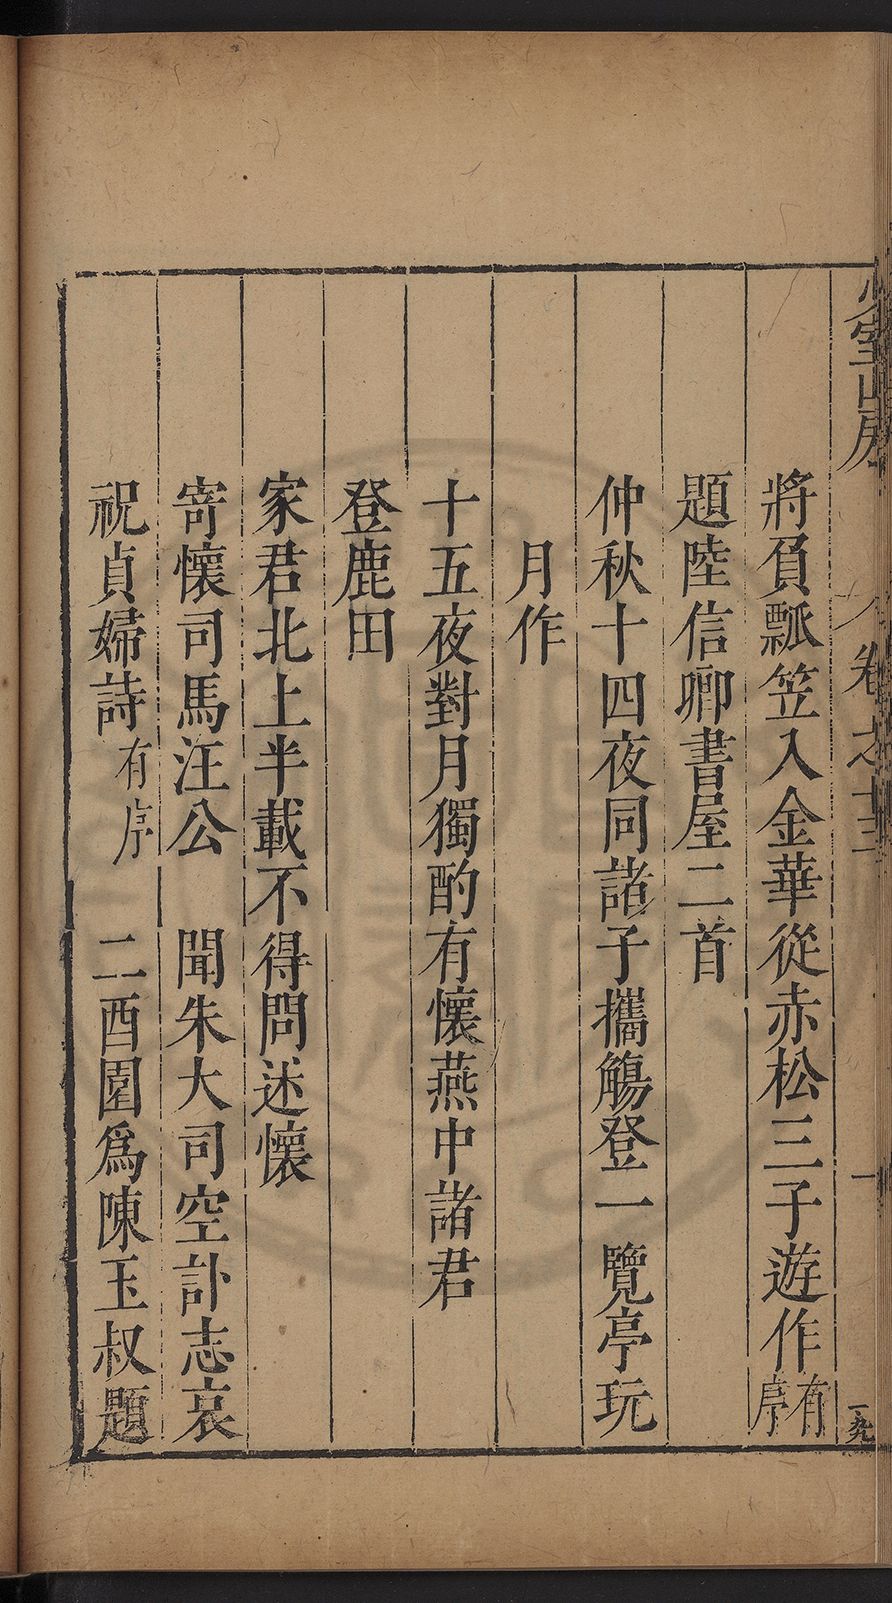 少室山房
卷之十三
一
將負瓢笠入金華從赤松三子遊作有序
題陸信卿書屋二首
仲秋十四夜同諸子攜觴登一覽亭玩
月作
十五夜對月獨酌有懷燕中諸君
登鹿田
家君北上半載不得問述懷
寄懷司馬汪公 聞朱大司空訃志哀
祝貞婦詩有序 二酉園爲陳玉叔題